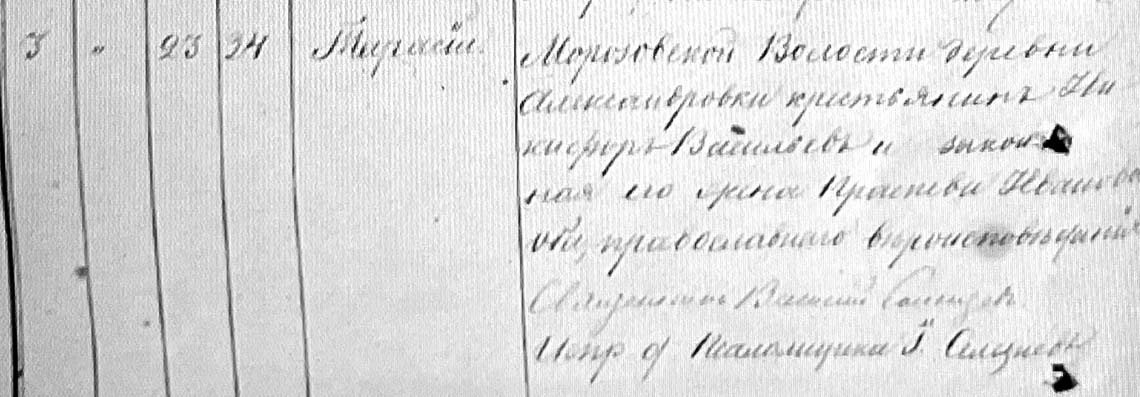 3 " 23 24 Тарасiй.
Морозовской Волости деревни
Александровки крестьянинъ Ни
кифоръ Васильевъ и закон
ная его жена Параскеви Иванова
оба, православнаго вѣроисповѣданiя
Священникъ Василий
Испр. д. Псаломщика I. Селезневъ